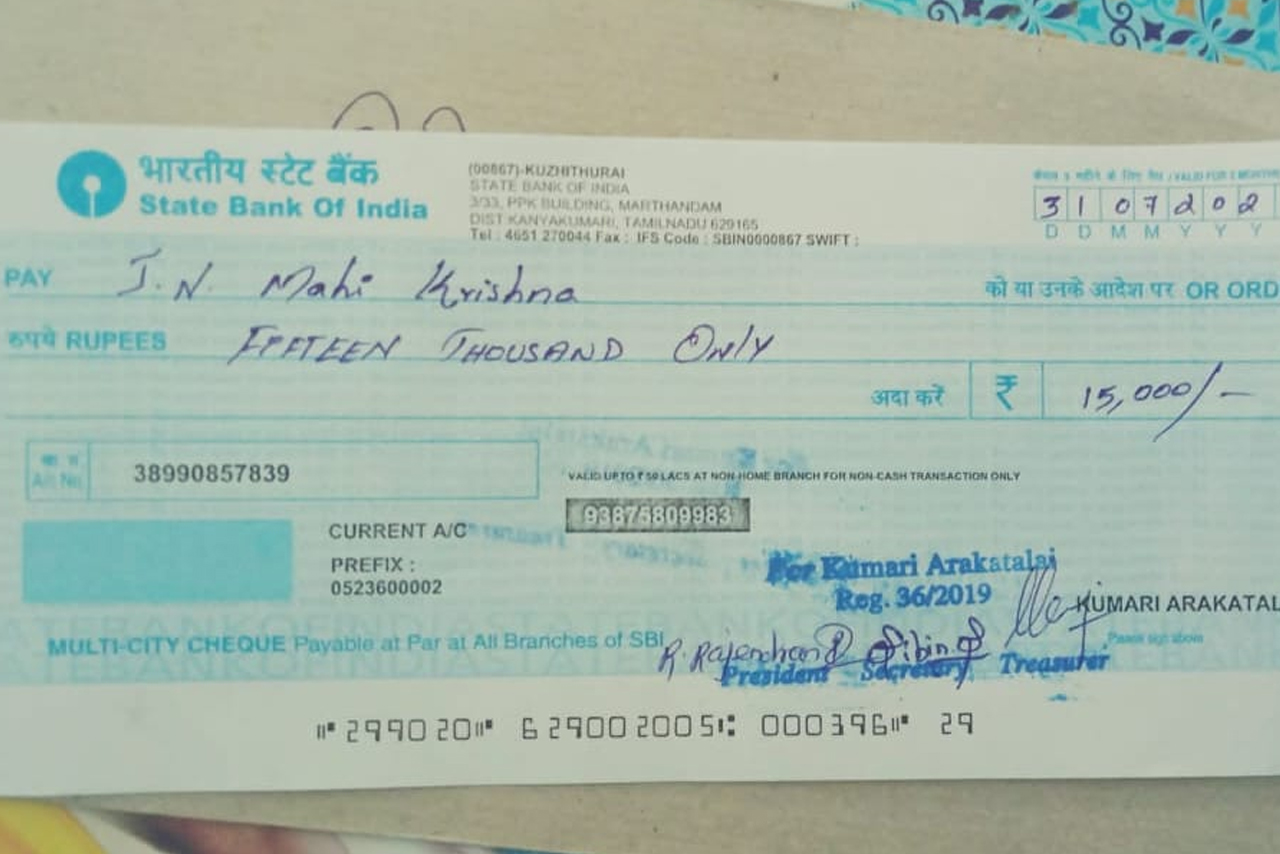 भारतीय स्टेट बैंक
State Bank Of India
(00867)-KUZHITHURAI
STATE BANK OF INDIA
3/33, PPK BUILDING, MARTHANDAM
DIST KANYAKUMARI, TAMILNADU 629165
Tel : 4651 270044 Fax : IFS Code : SBIN0000867 SWIFT :
3 1 0 7 2 0 2
D D M M Y Y Y
PAY J.N. Mahi Krishna को या उनके आदेश पर OR ORD
रुपये RUPEES FIFTEEN THOUSAND ONLY
अदा करें ₹ 15,000/-
38990857839
VALID UPTO ₹ 50 LACS AT NON-HOME BRANCH FOR NON-CASH TRANSACTION ONLY
93875809983
CURRENT A/C
PREFIX :
0523600002
For Kumari Arakatalai
Reg. 36/2019
KUMARI ARAKATAL
Please sign above
MULTI-CITY CHEQUE Payable at Par at All Branches of SBI
R. Rajendran
President Secretary Treasurer
⑈299020⑈ 629002005⑆ 000396⑈ 29